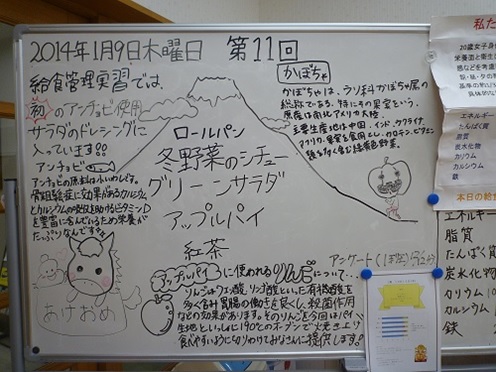 2014年1月9日木曜日 第11回
給食管理実習では、
初のアンチョビ使用
サラダのドレシングに
入っています!!
アンチョビ
アンチョビの原料はいわしです。
骨粗鬆症に効果があるカルシウム
とカルシウムの吸収を助けるビタミンD
を豊富に含んでいるため栄養が
たっぷりなんですよ
あけおめ
ロールパン
冬野菜のシチュー
グリーンサラダ
アップルパイ
紅茶
かぼちゃ
かぼちゃは、ウリ科かぼちゃ属の
総称である。特にその果実をいう。
原産は南北アメリカ大陸
主要生産地は中国、インド、ウクライナ、
アフリカ。果実を食用とし、カロテン、ビタミン
類を多く含む緑黄色野菜。
アンケート
アップルパイに使われるりんごについて…
りんごはクエン酸、リンゴ酸といった有機酸を
多く含み胃腸の働きを良くし、殺菌作用
などの効果があります。そのりんごを今回はパイ
生地といっしょに190℃のオーブンで火焼き上げ
食べやすいように切りわけておりさんに提供します!
私た
20歳女子身
エネルギー
たんぱく質
脂質
炭水化物
カリウム
カルシウム
鉄
本日の給食
エネルギー
脂質
たんぱく質
炭水化物
カリウム
カルシウム
鉄